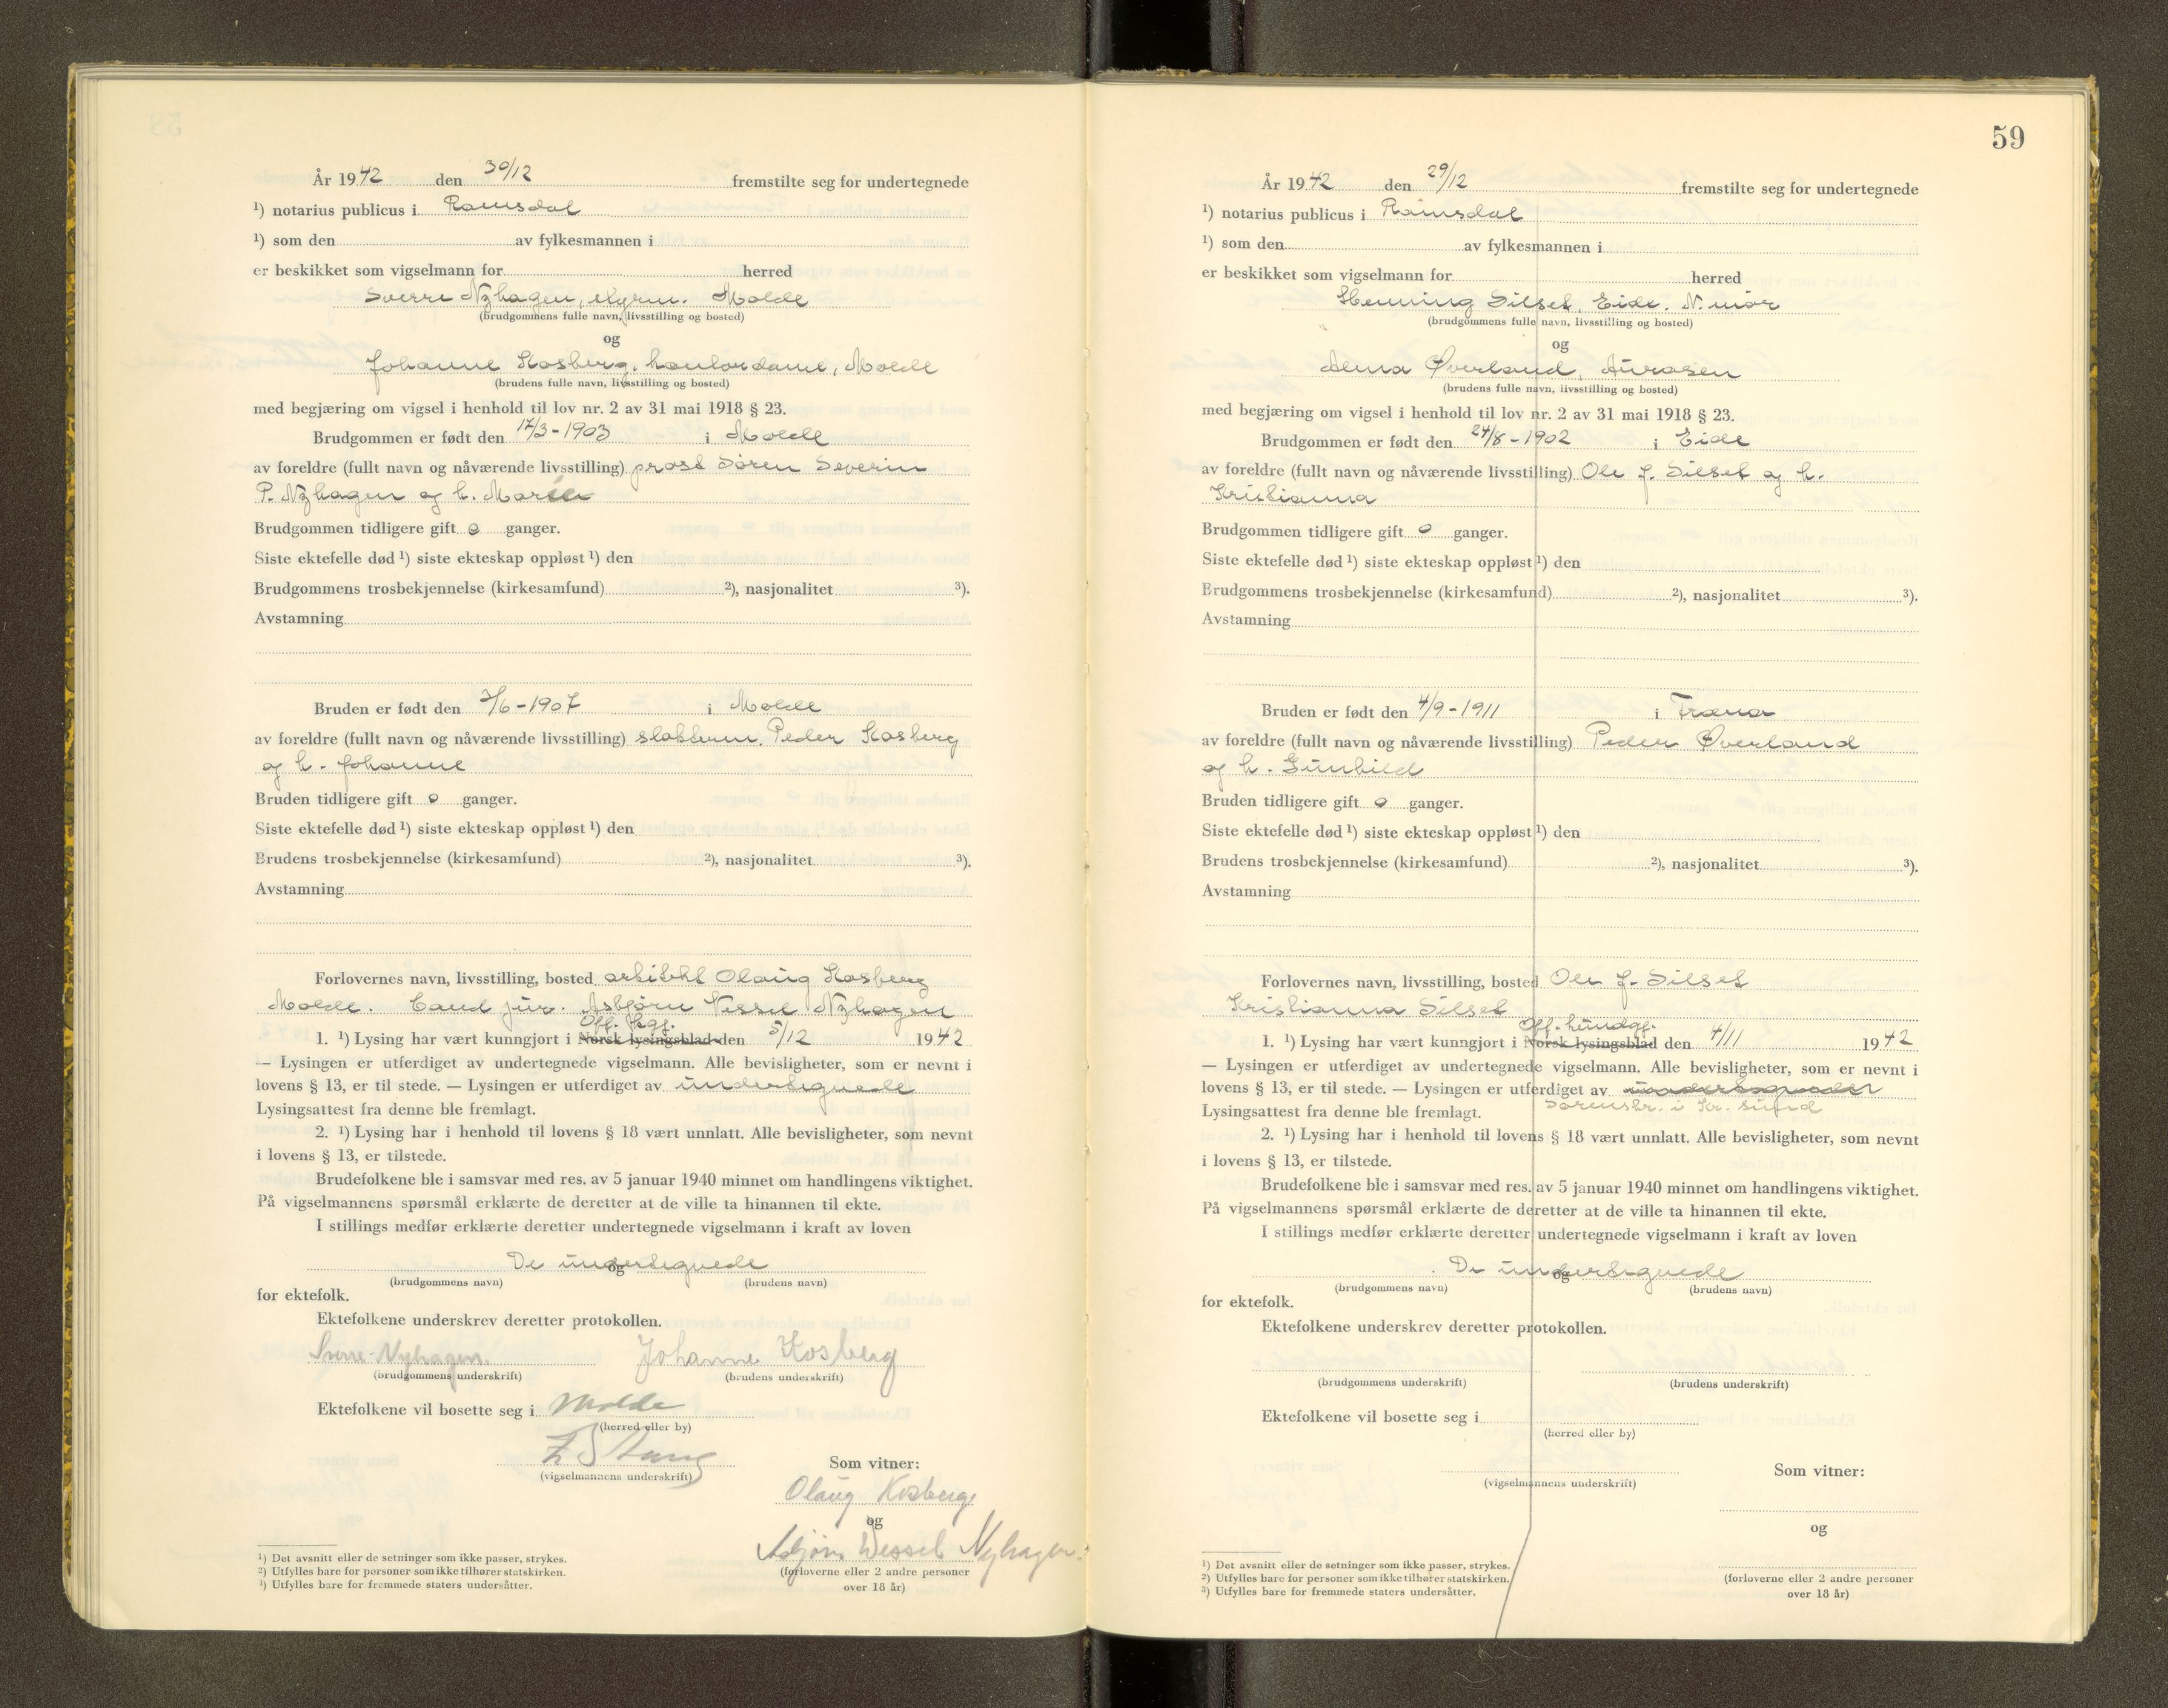 År 1942 den 30/12 fremstilte seg for undertegnede
¹) notarius publicus i Romsdal
¹) som den av fylkesmannen i
er beskikket som vigselmann for herred
Sverre Nyhagen, styrm. Molde
(brudgommens fulle navn, livsstilling og bosted)
og
Johanne Kosberg, kontordame, Molde
(brudens fulle navn, livsstilling og bosted)
med begjæring om vigsel i henhold til lov nr. 2 av 31 mai 1918 § 23.
Brudgommen er født den 17/3-1903 i Molde
av foreldre (fullt navn og nåværende livsstilling) prost Søren Severin
P. Nyhagen og h.
Brudgommen tidligere gift 0 ganger.
Siste ektefelle død ¹) siste ekteskap oppløst ¹) den
Brudgommens trosbekjennelse (kirkesamfund) ²), nasjonalitet ³).
Avstamning
Bruden er født den /6-1907 i Molde
av foreldre (fullt navn og nåværende livsstilling) Peder Kosberg
og h. Johanne
Bruden tidligere gift 0 ganger.
Siste ektefelle død ¹) siste ekteskap oppløst ¹) den
Brudens trosbekjennelse (kirkesamfund) ²), nasjonalitet ³).
Avstamning
Forlovernes navn, livsstilling, bosted arkitekt Olaug Kosberg
Molde. Cand. jur. Asbjørn Wessel Nyhagen
Off. kgj.
1. ¹) Lysing har vært kunngjort i Norsk lysingsblad den 5/12 1942
— Lysingen er utferdiget av undertegnede vigselmann. Alle bevisligheter, som er nevnt i
lovens § 13, er til stede. — Lysingen er utferdiget av undertegnede
Lysingsattest fra denne ble fremlagt.
2. ¹) Lysing har i henhold til lovens § 18 vært unnlatt. Alle bevisligheter, som nevnt
i lovens § 13, er tilstede.
Brudefolkene ble i samsvar med res. av 5 januar 1940 minnet om handlingens viktighet.
På vigselmannens spørsmål erklærte de deretter at de ville ta hinannen til ekte.
I stillings medfør erklærte deretter undertegnede vigselmann i kraft av loven
De undertegnede
og
(brudgommens navn) (brudens navn)
for ektefolk.
Ektefolkene underskrev deretter protokollen.
Sverre Nyhagen. Johanne Kosberg
(brudgommens underskrift) (brudens underskrift)
Ektefolkene vil bosette seg i Molde
(herred eller by)
(vigselmannens underskrift)
Som vitner:
Olaug Kosberg
og
Asbjørn Wessel Nyhagen.
(forloverne eller 2 andre personer
over 18 år)
¹) Det avsnitt eller de setninger som ikke passer, strykes.
²) Utfylles bare for personer som ikke tilhører statskirken.
³) Utfylles bare for fremmede staters undersåtter.
59
År 1942 den 29/12 fremstilte seg for undertegnede
¹) notarius publicus i Romsdal
¹) som den av fylkesmannen i
er beskikket som vigselmann for herred
Henning Silset, Eide, N.mør
(brudgommens fulle navn, livsstilling og bosted)
og
Alma Øverland, Aurosen
(brudens fulle navn, livsstilling og bosted)
med begjæring om vigsel i henhold til lov nr. 2 av 31 mai 1918 § 23.
Brudgommen er født den 24/8-1902 i Eide
av foreldre (fullt navn og nåværende livsstilling) Ole J. Silset og h.
Kristianna
Brudgommen tidligere gift 0 ganger.
Siste ektefelle død ¹) siste ekteskap oppløst ¹) den
Brudgommens trosbekjennelse (kirkesamfund) ²), nasjonalitet ³).
Avstamning
Bruden er født den 4/9-1911 i Fræna
av foreldre (fullt navn og nåværende livsstilling) Peder Øverland
og h. Gunhild
Bruden tidligere gift 0 ganger.
Siste ektefelle død ¹) siste ekteskap oppløst ¹) den
Brudens trosbekjennelse (kirkesamfund) ²), nasjonalitet ³).
Avstamning
Forlovernes navn, livsstilling, bosted Ole J. Silset
Kristianna Silset
Off. kundgj.
1. ¹) Lysing har vært kunngjort i Norsk lysingsblad den 4/11 1942
— Lysingen er utferdiget av undertegnede vigselmann. Alle bevisligheter, som er nevnt i
lovens § 13, er til stede. — Lysingen er utferdiget av undertegnede
Sorenskr. i Kr. sund
Lysingsattest fra denne ble fremlagt.
2. ¹) Lysing har i henhold til lovens § 18 vært unnlatt. Alle bevisligheter, som nevnt
i lovens § 13, er tilstede.
Brudefolkene ble i samsvar med res. av 5 januar 1940 minnet om handlingens viktighet.
På vigselmannens spørsmål erklærte de deretter at de ville ta hinannen til ekte.
I stillings medfør erklærte deretter undertegnede vigselmann i kraft av loven
De undertegnede
og
(brudgommens navn) (brudens navn)
for ektefolk.
Ektefolkene underskrev deretter protokollen.
(brudgommens underskrift) (brudens underskrift)
Ektefolkene vil bosette seg i
(herred eller by)
(vigselmannens underskrift)
Som vitner:
og
(forloverne eller 2 andre personer
over 18 år)
¹) Det avsnitt eller de setninger som ikke passer, strykes.
²) Utfylles bare for personer som ikke tilhører statskirken.
³) Utfylles bare for fremmede staters undersåtter.